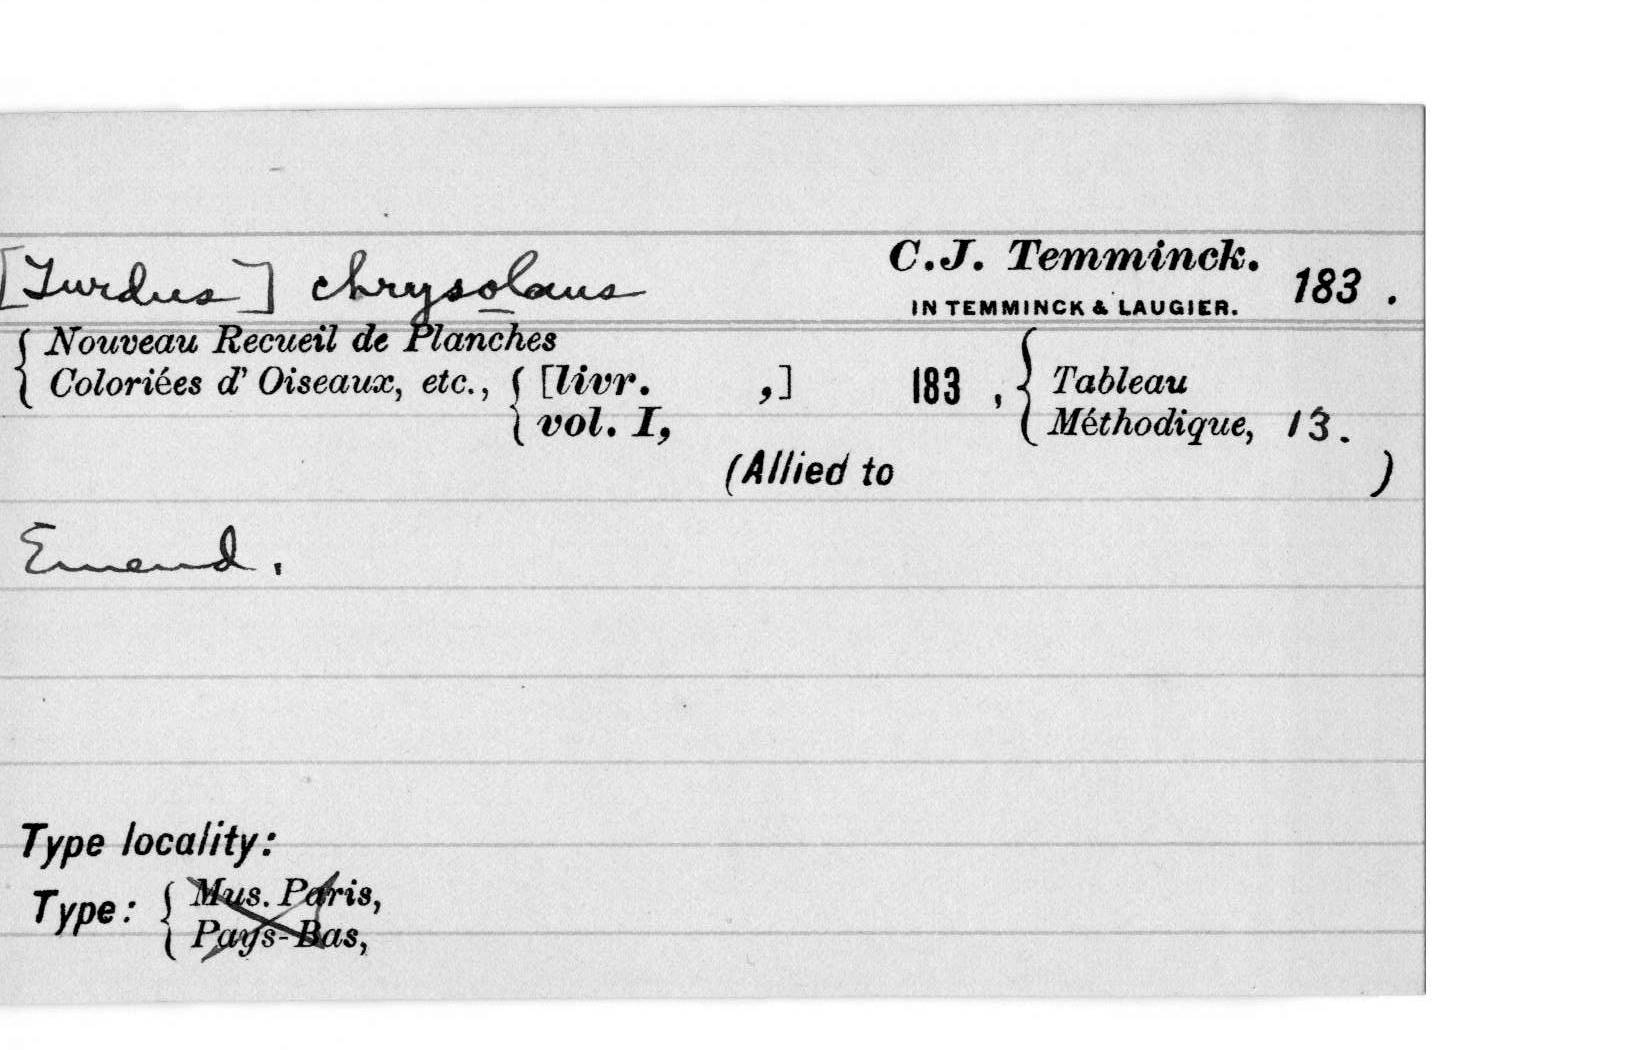 [Turdus] chrysolaus C.J. Temminck. 183 .
IN TEMMINCK & LAUGIER.
{ Nouveau Recueil de Planches
Coloriées d' Oiseaux, etc., { [livr. ,] 183 , { Tableau
vol. I, Méthodique, 13.
(Allied to )
Emend.
Type locality:
Type: { Mus. Paris,
Pays-Bas,